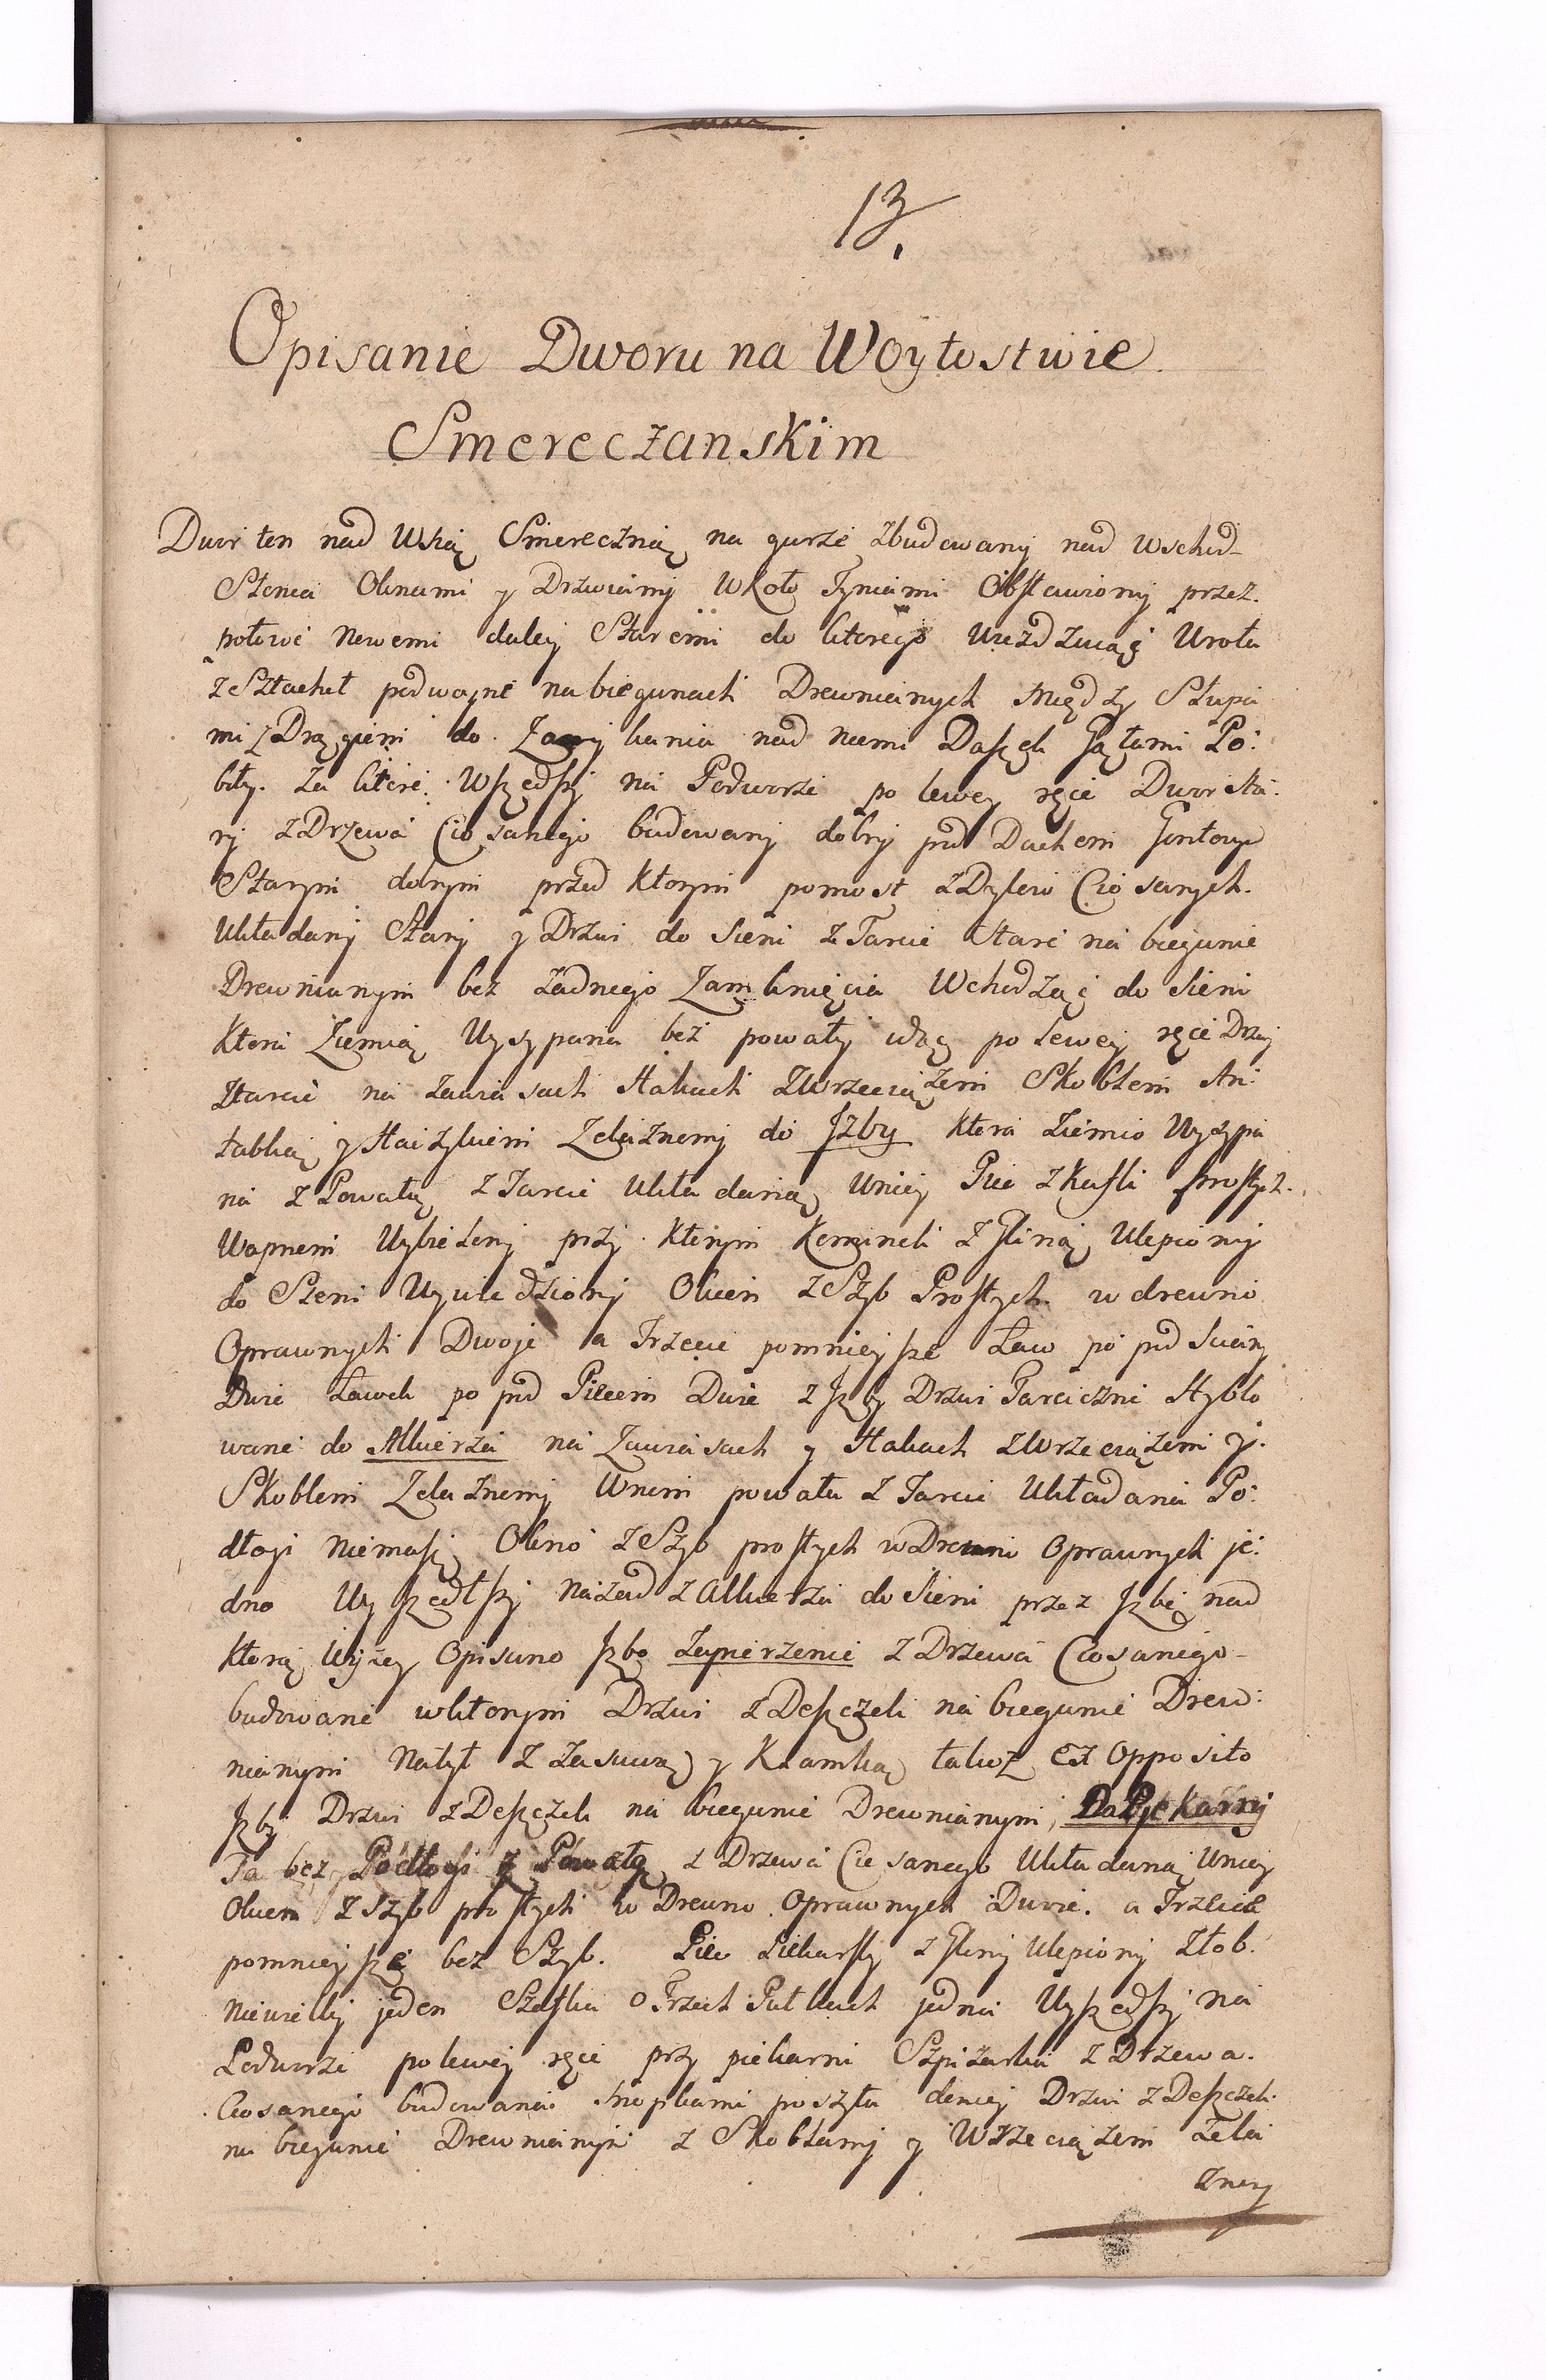 13.
Opisanie Dworu na Woytostwie
Smereczanskim
Dwor ten nad Wsią Smereczną na gurze zbudowany nad Wschod-
Słonca Oknami y Drzwiamy Wkoło Tyniami Obstawiony przez.
połowe Nowemi daley Staremi do ktorego Wieżdzaiąc Wrota
z Sztachet podwoyne na biegunach Drewnianych Między Słupa
mi z Drągiem do Zamykania nad niemi Daszek Gątami Po:
bity. Za ktore Wszedszy na Podworze po lewey ręce Dwor Sta:
ry z Drzewa Ciosanego budowany dobry pod Dachem Gontowym
Starym dobrym przed Ktorym pomost z Dylow Ciosanych.
Układany Stary y Drzwi do Sieni z Tarcic Stare na biegunie
Drewnianym bez żadnego Zamknięcia Wchodząc do Sieni
Ktora Ziemią Wysypana bez powały idzą po Lewey ręce Drzwi
z Tarcic na zawiasach Hakach z Wrzeciązem Skoblem An:
tabką y Haczykiem Zelaznemy do Jzby Ktora Ziemio Wysypa
na z Powałą z Tarcic Układaną Wniey Piec z Kafli prostych.
Wapnem Wybielony przy Ktorym Kominek z Gliną Ulepiony
do Sieni Wywiedziony Okien z Szyb Prostych w drewno
Oprawnych Dwoje a Trzecie pomnieysze Ław po pod Sciany
Dwie Ławek po pod Piecem Dwie z Jzby Drzwi Tarciczne Hyblo
wane do Alkierza na Zawiasach y Hakach z Wrzeciązem y.
Skoblem Zelaznemy Wnim powała z Tarcic Układana Po:
dłogi niemasz Okno z Szyb prostych w Drewno Oprawnych je:
dno Wyszedłszy nazad z Alkierza do Sieni przez Jzbę nad
Ktorą Wyżey Opisano Jzbą Zapierzenie z Drzewa Ciosanego-
budowane wktorym Drzwi z Deszczek na biegunie Drew:
nianym z Zasuwą y Klamką takoż Ex Opposito
Jzby Drzwi z Deszczek na biegunie Drewnianym, Da Piekarny
Ta bez Podłogi z Powałą z Drzewa Ciosanego Układaną Wniey
Okien z Szyb prostych w Drewno Oprawnych Dwoie. a Trzecie
pomnieysze bez Szyb. Piec Piekarsky z Gliny Ulepiony Złob.
Niewielky jeden Szafka o Trzech Pułkach jedna Wyszedszy na
Podworze po lewey ręce przy piekarni Szpizarka z Drzewa.
Ciosanego budowana Snopkami poszyta doniey Drzwi z Deszczek
na biegunie Drewnianym z Skoblamy y Wrzeciązem Zela
znemy